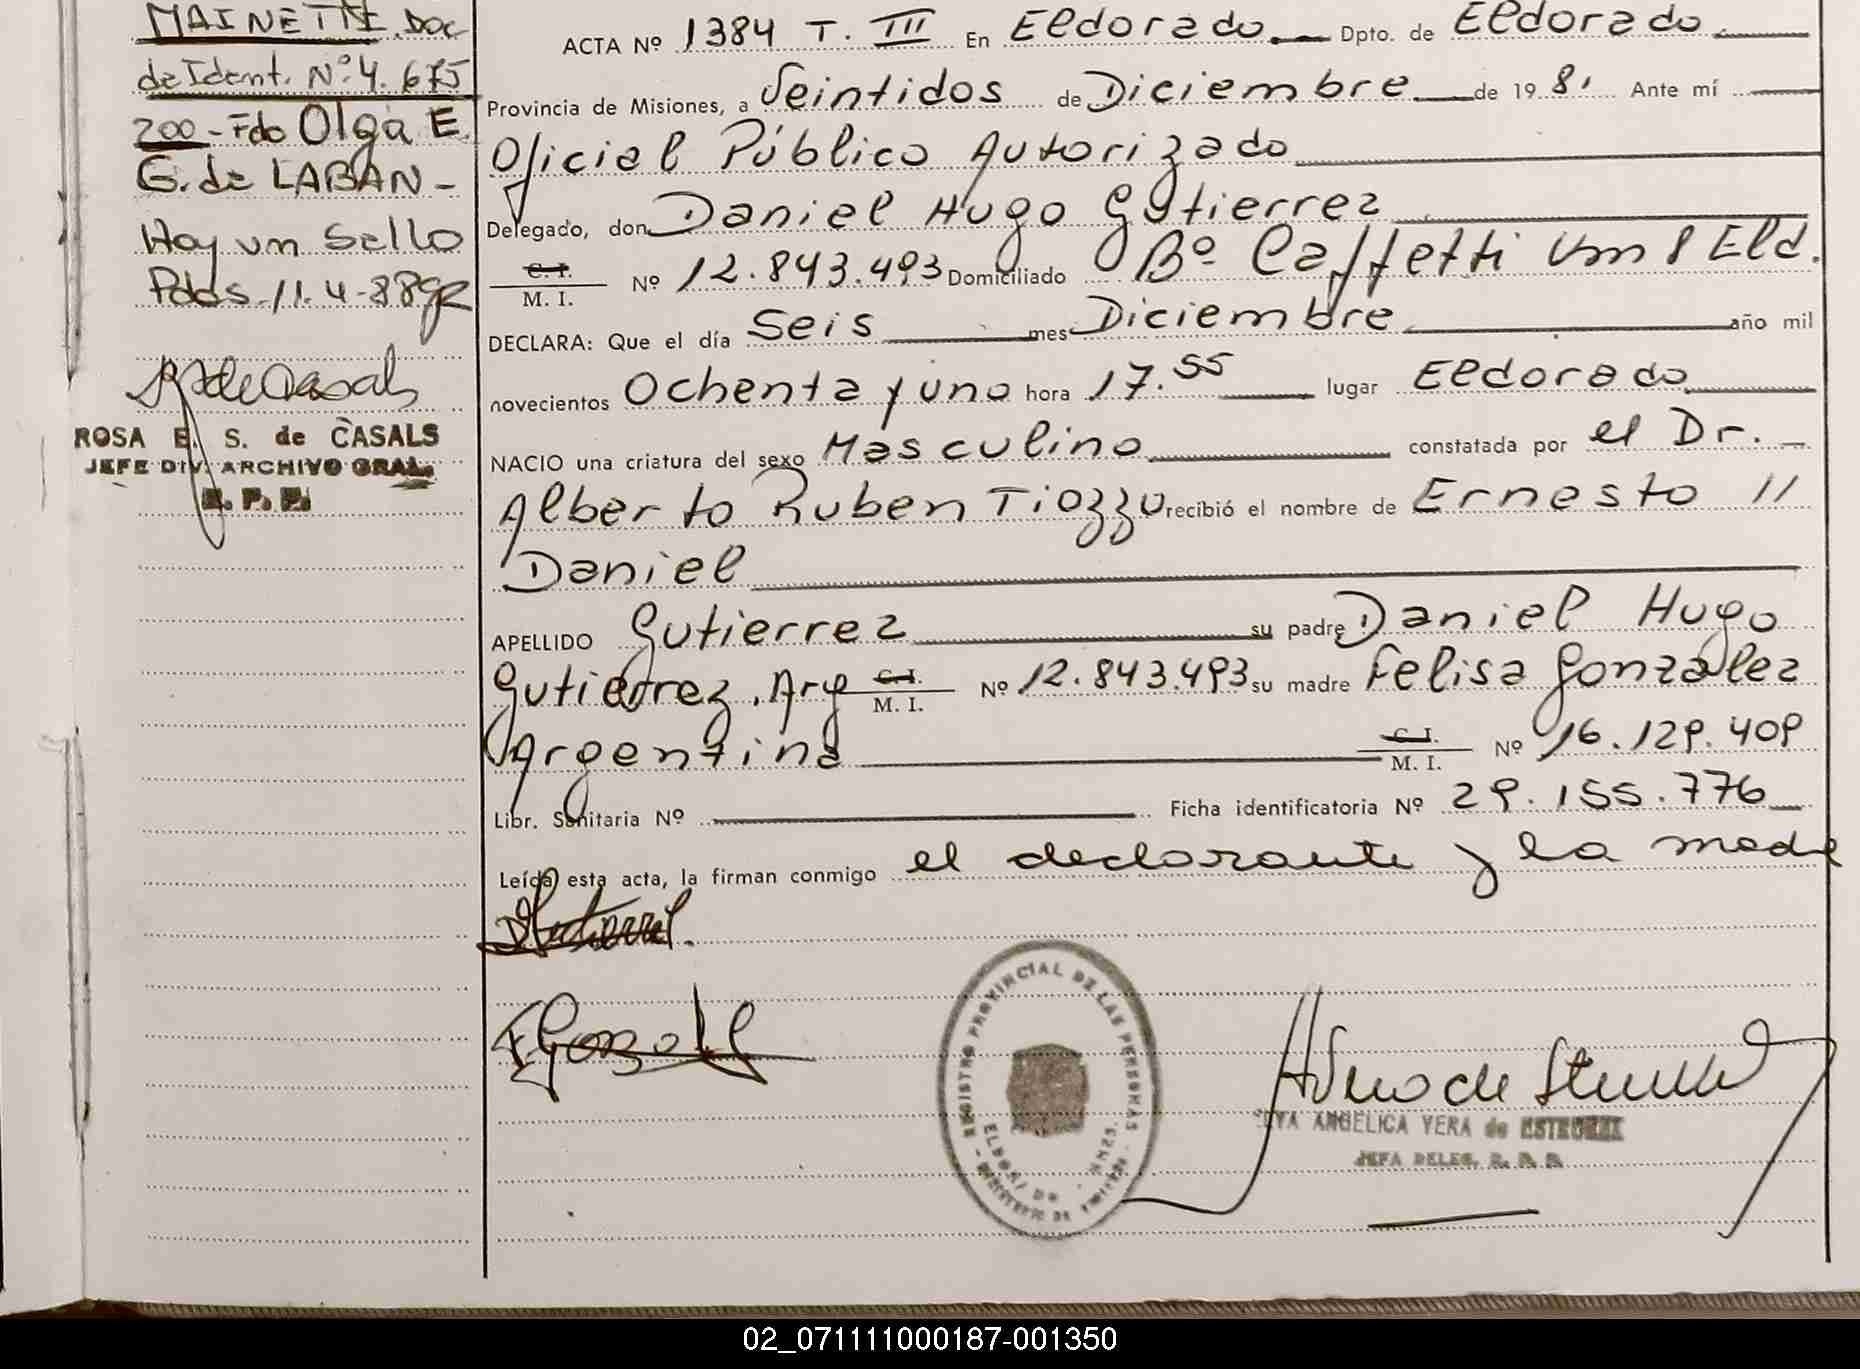 MAINETTI. Doc
de Ident. Nº 4.675
200 - Fdo Olga E.
G. de LABAN -
Hay un Sello
Pdas. 11-4-88
ROSA E. S. de CASALS
JEFE DIV. ARCHIVO GRAL.
R. P. P.
ACTA Nº 1384 T. III En Eldorado Dpto. de Eldorado
Provincia de Misiones, a Veintidos de Diciembre de 1981 Ante mí
Oficial Público Autorizado
Delegado, don Daniel Hugo Gutierrez
C.I. M. I. Nº 12.843.493 Domiciliado Bº Caffetti Km 8 Eld.
DECLARA: Que el día Seis mes Diciembre año mil
novecientos Ochenta y uno hora 17.55 lugar Eldorado
NACIO una criatura del sexo Masculino constatada por el Dr.
Alberto Ruben Tiozzo recibió el nombre de Ernesto //
Daniel
APELLIDO Gutierrez su padre Daniel Hugo
Gutierrez, Arg C.I. M. I. Nº 12.843.493 su madre Felisa Gonzalez
Argentina C.I. M. I. Nº 16.129.409
Libr. Sanitaria Nº Ficha identificatoria Nº 29.155.776
Leída esta acta, la firman conmigo el declarante y la madre
REGISTRO PROVINCIAL DE LAS PERSONAS
ANGELICA VERA de
JEFA DELEG. R. P. P.
02_071111000187-001350